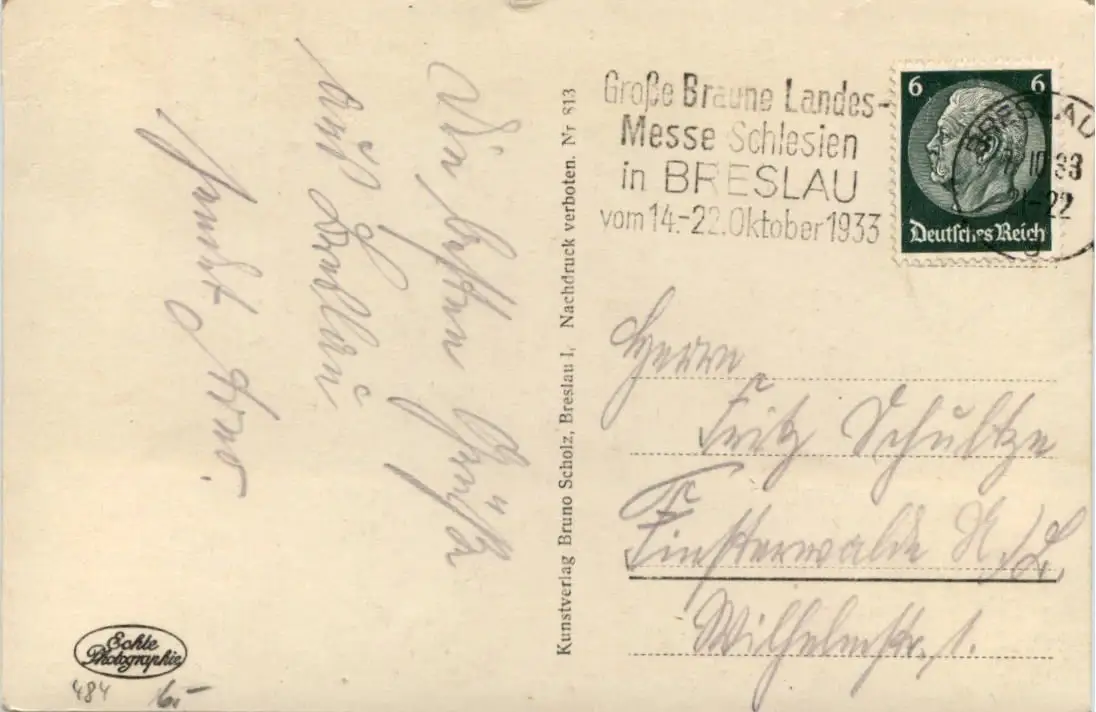 Große Braune Landes-
Messe Schlesien
in BRESLAU
vom 14.-22. Oktober 1933
6 6
Deutsches Reich
BRESLAU
10.33
21-22
Die besten Grüße
aus
Kunstverlag Bruno Scholz, Breslau I, Nachdruck verboten. Nr 813
Herrn
Fritz Schultze
Finsterwalde N./L.
Wilhelmstr. 1.
Echte
Photographie
484